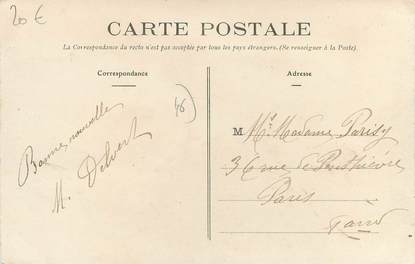 20 €
CARTE POSTALE
La Correspondance du recto n'est pas acceptée par tous les pays étrangers. (Se renseigner à la Poste).
Correspondance
Adresse
Bonne nouvelle
M. Delvert
M Mr. Madame Parisy
36 rue de Penthièvre
Paris